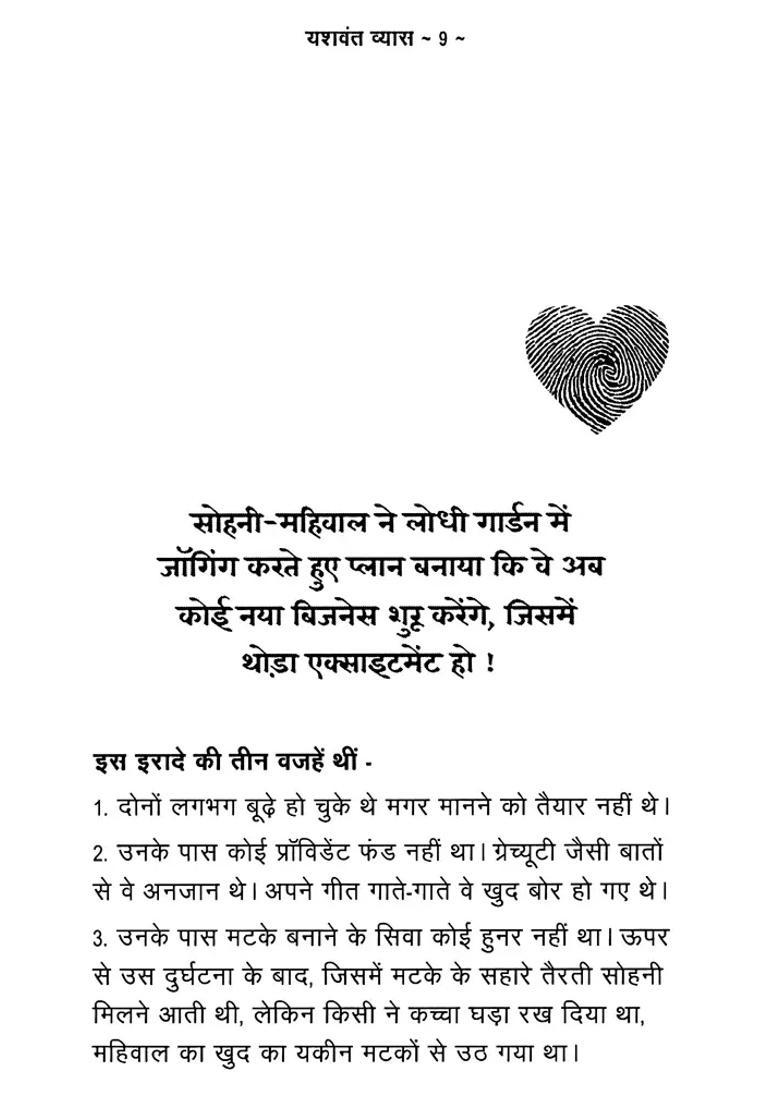 यशवंत व्यास ~ 9 ~
सोहनी-महिवाल ने लोधी गार्डन में
जॉगिंग करते हुए प्लान बनाया कि वे अब
कोई नया बिजनेस शुरू करेंगे, जिसमें
थोड़ा एक्साइटमेंट हो !
इस इरादे की तीन वजहें थीं -
1. दोनों लगभग बूढ़े हो चुके थे मगर मानने को तैयार नहीं थे।
2. उनके पास कोई प्रॉविडेंट फंड नहीं था। ग्रेच्यूटी जैसी बातों
से वे अनजान थे। अपने गीत गाते-गाते वे खुद बोर हो गए थे।
3. उनके पास मटके बनाने के सिवा कोई हुनर नहीं था। ऊपर
से उस दुर्घटना के बाद, जिसमें मटके के सहारे तैरती सोहनी
मिलने आती थी, लेकिन किसी ने कच्चा घड़ा रख दिया था,
महिवाल का खुद का यकीन मटकों से उठ गया था।